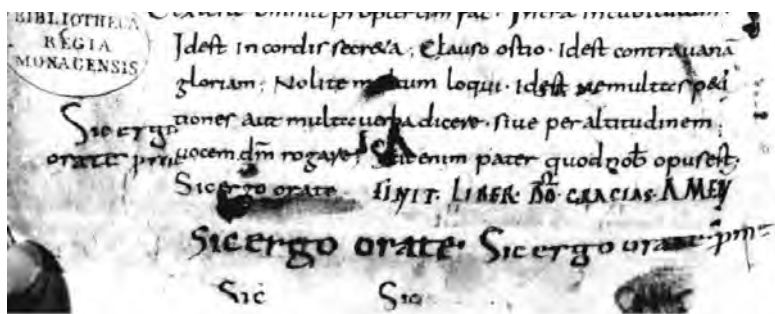 BIBLIOTHECA
REGIA
MONACENSIS
Idest in cordis secreta ; Clauso ostio · Idest contra uanā
gloriam ; Nolite multum loqui · Idest ne multas peti
tiones aut multa uerba dicere · siue per altitudinem
uocem dm̄ rogare ; Scit enim pater quod nob̄ opus est ;
Sic ergo orate FINIT · LIBER · DŌ · GRACIAS · AMEN
Sic ergo
orate
Sic ergo orate · Sic ergo orate
Sic Sic